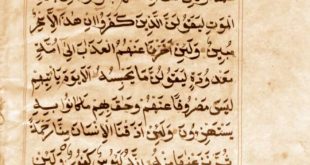 الموت ليقولن الذين كفروا ان هذا الا سحر
مبين ولئن اخرنا عنهم العذاب الى امة
معدودة ليقولن ما يحبسه الا يوم ياتيهم
ليس مصروفا عنهم وحاق بهم ما كانوا به
يستهزون ولئن اذقنا الانسان منا رحمة